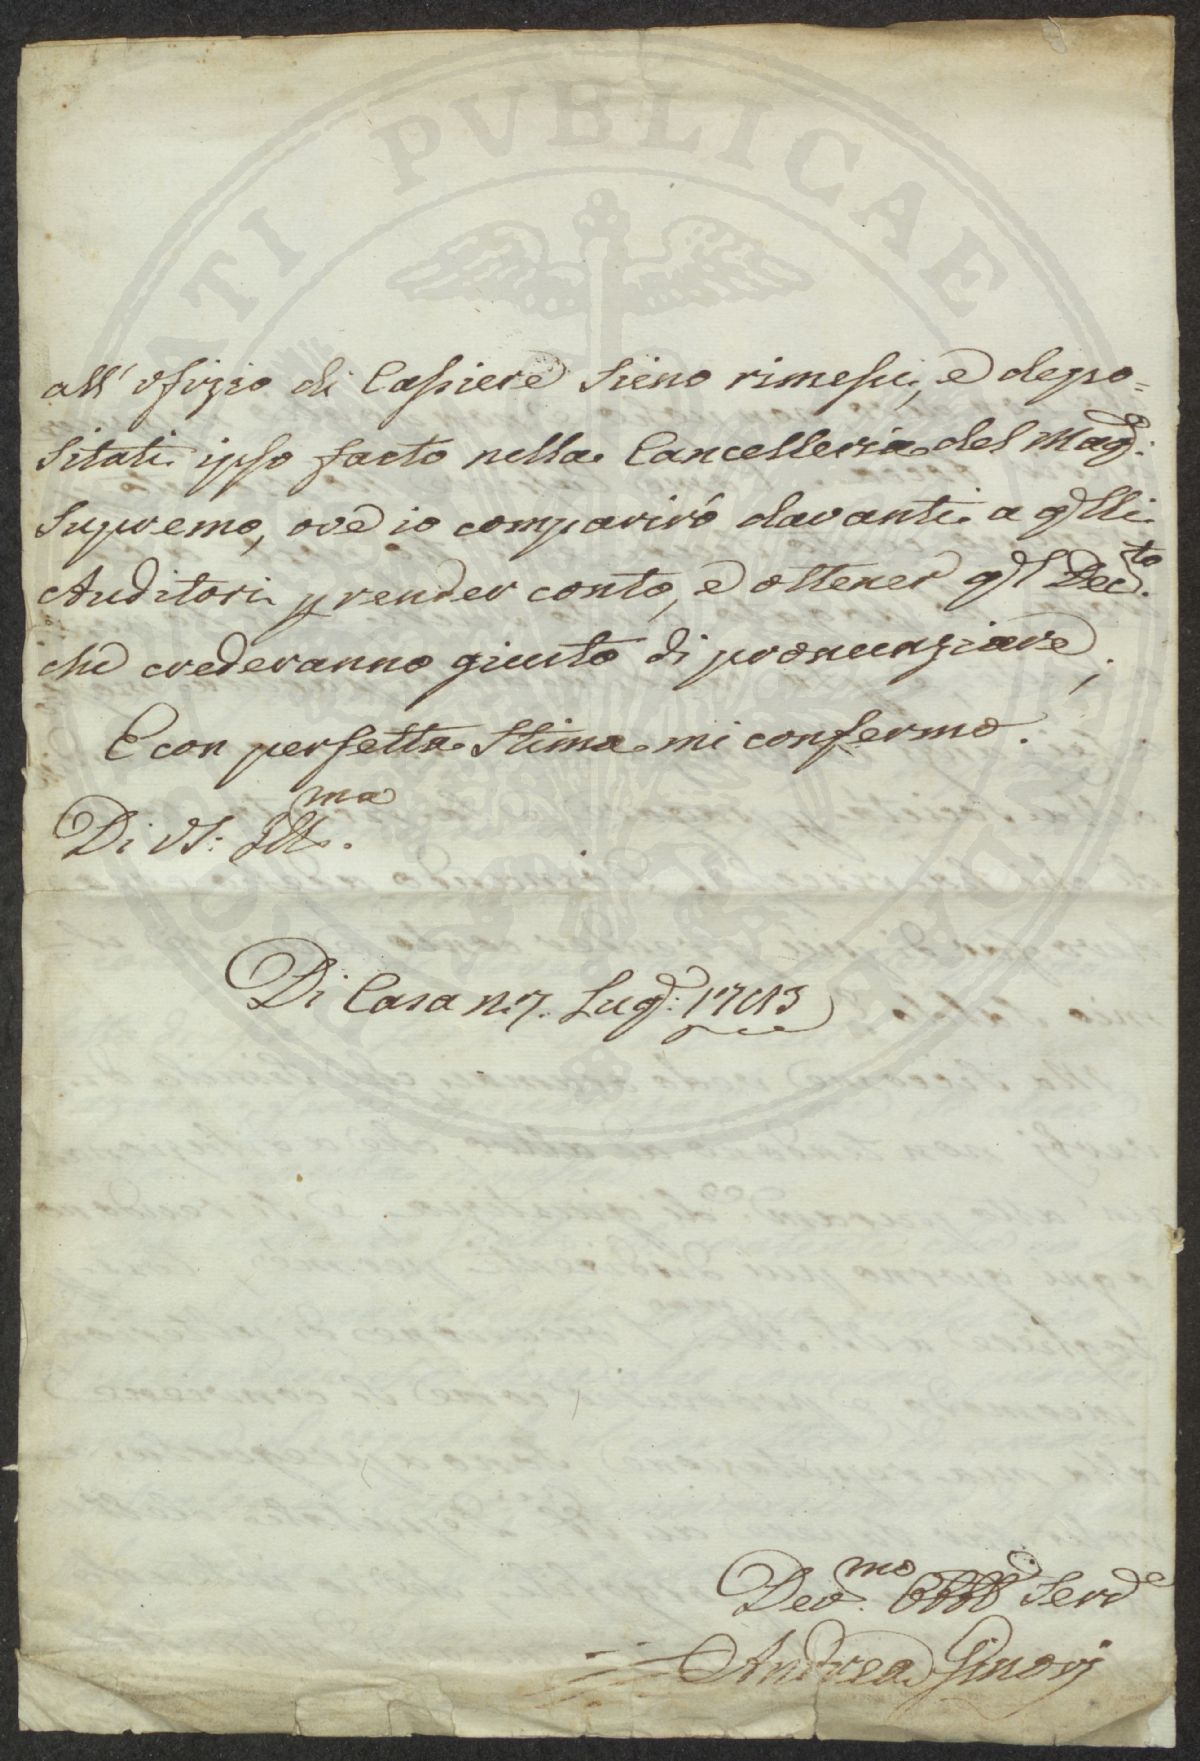 ATI PVBLICAE
all' ofizio di Cassiere sieno rimessi, e depo=
sitati ipso facto nella Cancelleria del Mag.e
Supremo, ove io compariró davanti a qlli
Auditori p render conto, e ottener ql Dec.to
che crederanno giusto di pronunziare;
E con perfetta stima mi confermo.
Di VS: Ill.ma
Di Casa n. 7. Lug.o: 1783
Dev.mo Obbl Serv.e
Andrea Ginori